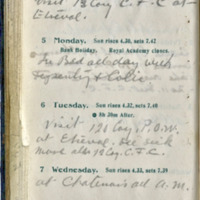 visit 12 Coy. C.F.C. at
Etreval.
5 Monday, Sun rises 4.30, sets 7.42
Bank Holiday, Royal Academy closes.
In Bed all day with
Dysentry & Colic
6 Tuesday, Sun rises 4.32, sets 7.40
8h 30m After.
Visit 12 Coy. P.O.W.
at Etreval. See sick
7 Wednesday, Sun rises 4.33, sets 7.39
at all A.M.